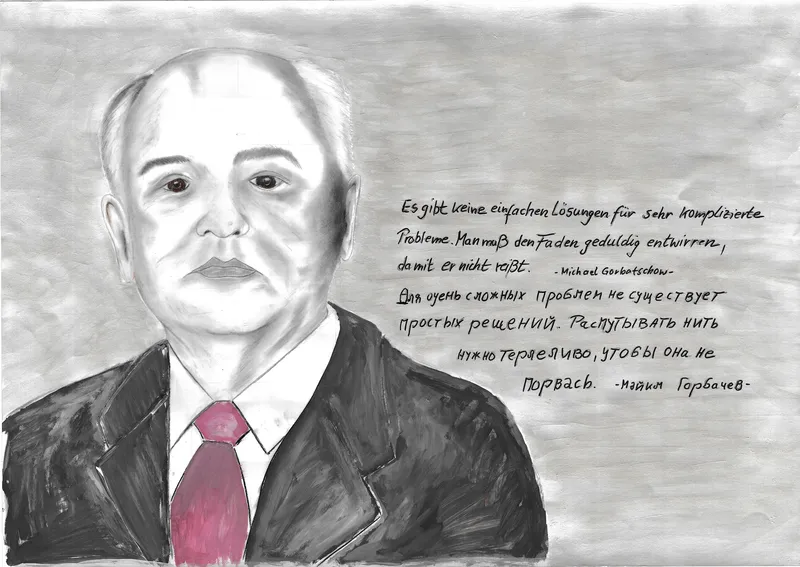 Es gibt keine einfachen Lösungen für sehr komplizierte
Probleme. Man muß den Faden geduldig entwirren,
damit er nicht reißt. -Michael Gorbatschow-
Для очень сложных проблем не существует
простых решений. Распутывать нить
нужно терпеливо, чтобы она не
порвась. -Майим Горбачев-